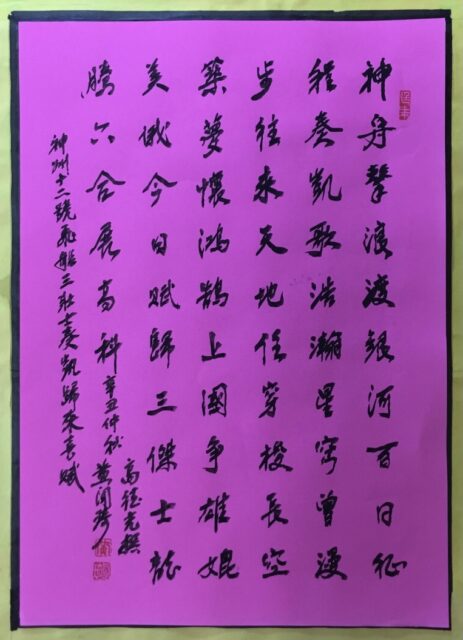 神舟擊浪渡銀河百日征
程奏凱歌浩瀚星穹曾漫
步往來天地任穿梭長空
築夢懷鴻鵠上國爭雄媲
美俄今日賦歸三傑士龍
騰六合展高科
神州十二號飛船三壯士奏凱歸來喜賦
辛丑仲秋
高 撰